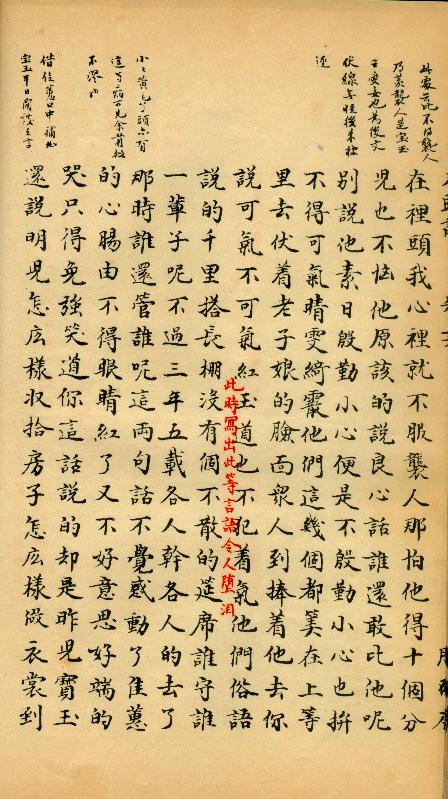 此處云比不得襲人
乃羨襲人是宝玉
之愛妾也為後文
小小黃毛丫頭亦有
借佳蕙口中補出
在裡頭我心裡就不服襲人那怕他得十個分
兒也不惱他原該的說良心話誰還敢比他呢
別說他素日殷勤小心便是不殷勤小心也拚
不得可氣晴雯綺霰他們這幾個都筭在上等
里去伏着老子娘的臉面衆人到捧着他去你
說可氣不可氣紅玉道也不犯着氣他們俗語
此時寫出此等言語令人墮泪
說的千里搭長棚沒有個不散的筵席誰守誰
一輩子呢不過三年五載各人幹各人的去了
那時誰還管誰呢這兩句話不覺感動了佳蕙
的心腸由不得眼睛紅了又不好意思好端的
哭只得免強笑道你這話說的却是昨兒寶玉
還說明兒怎庅樣収拾房子怎庅樣做衣裳到